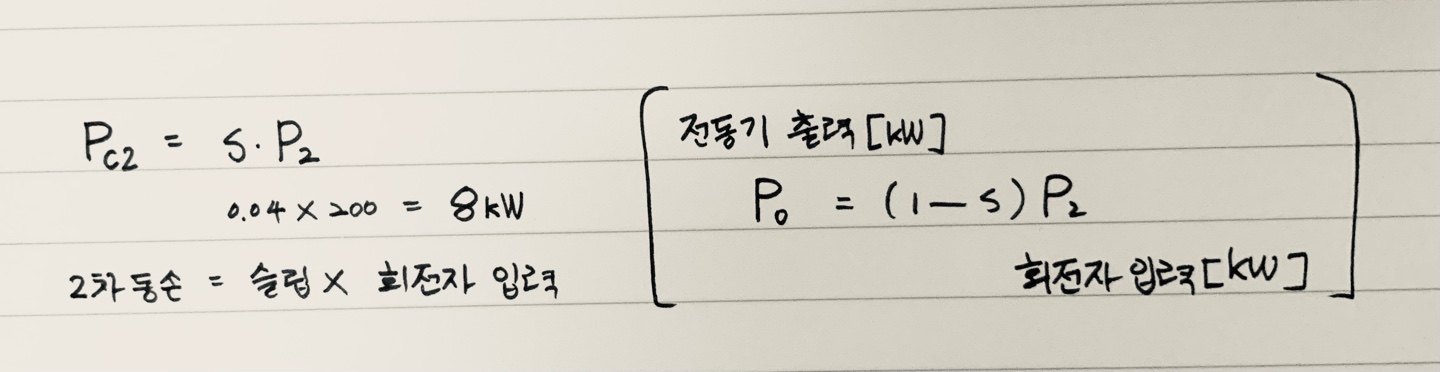 Pc2 = s. P2
0.04 × 200 = 8kW
2차 동손 = 슬립 × 회전자 입력
전동기 출력 [kW]
Po = (1-s) P2
회전자 입력 [kW]